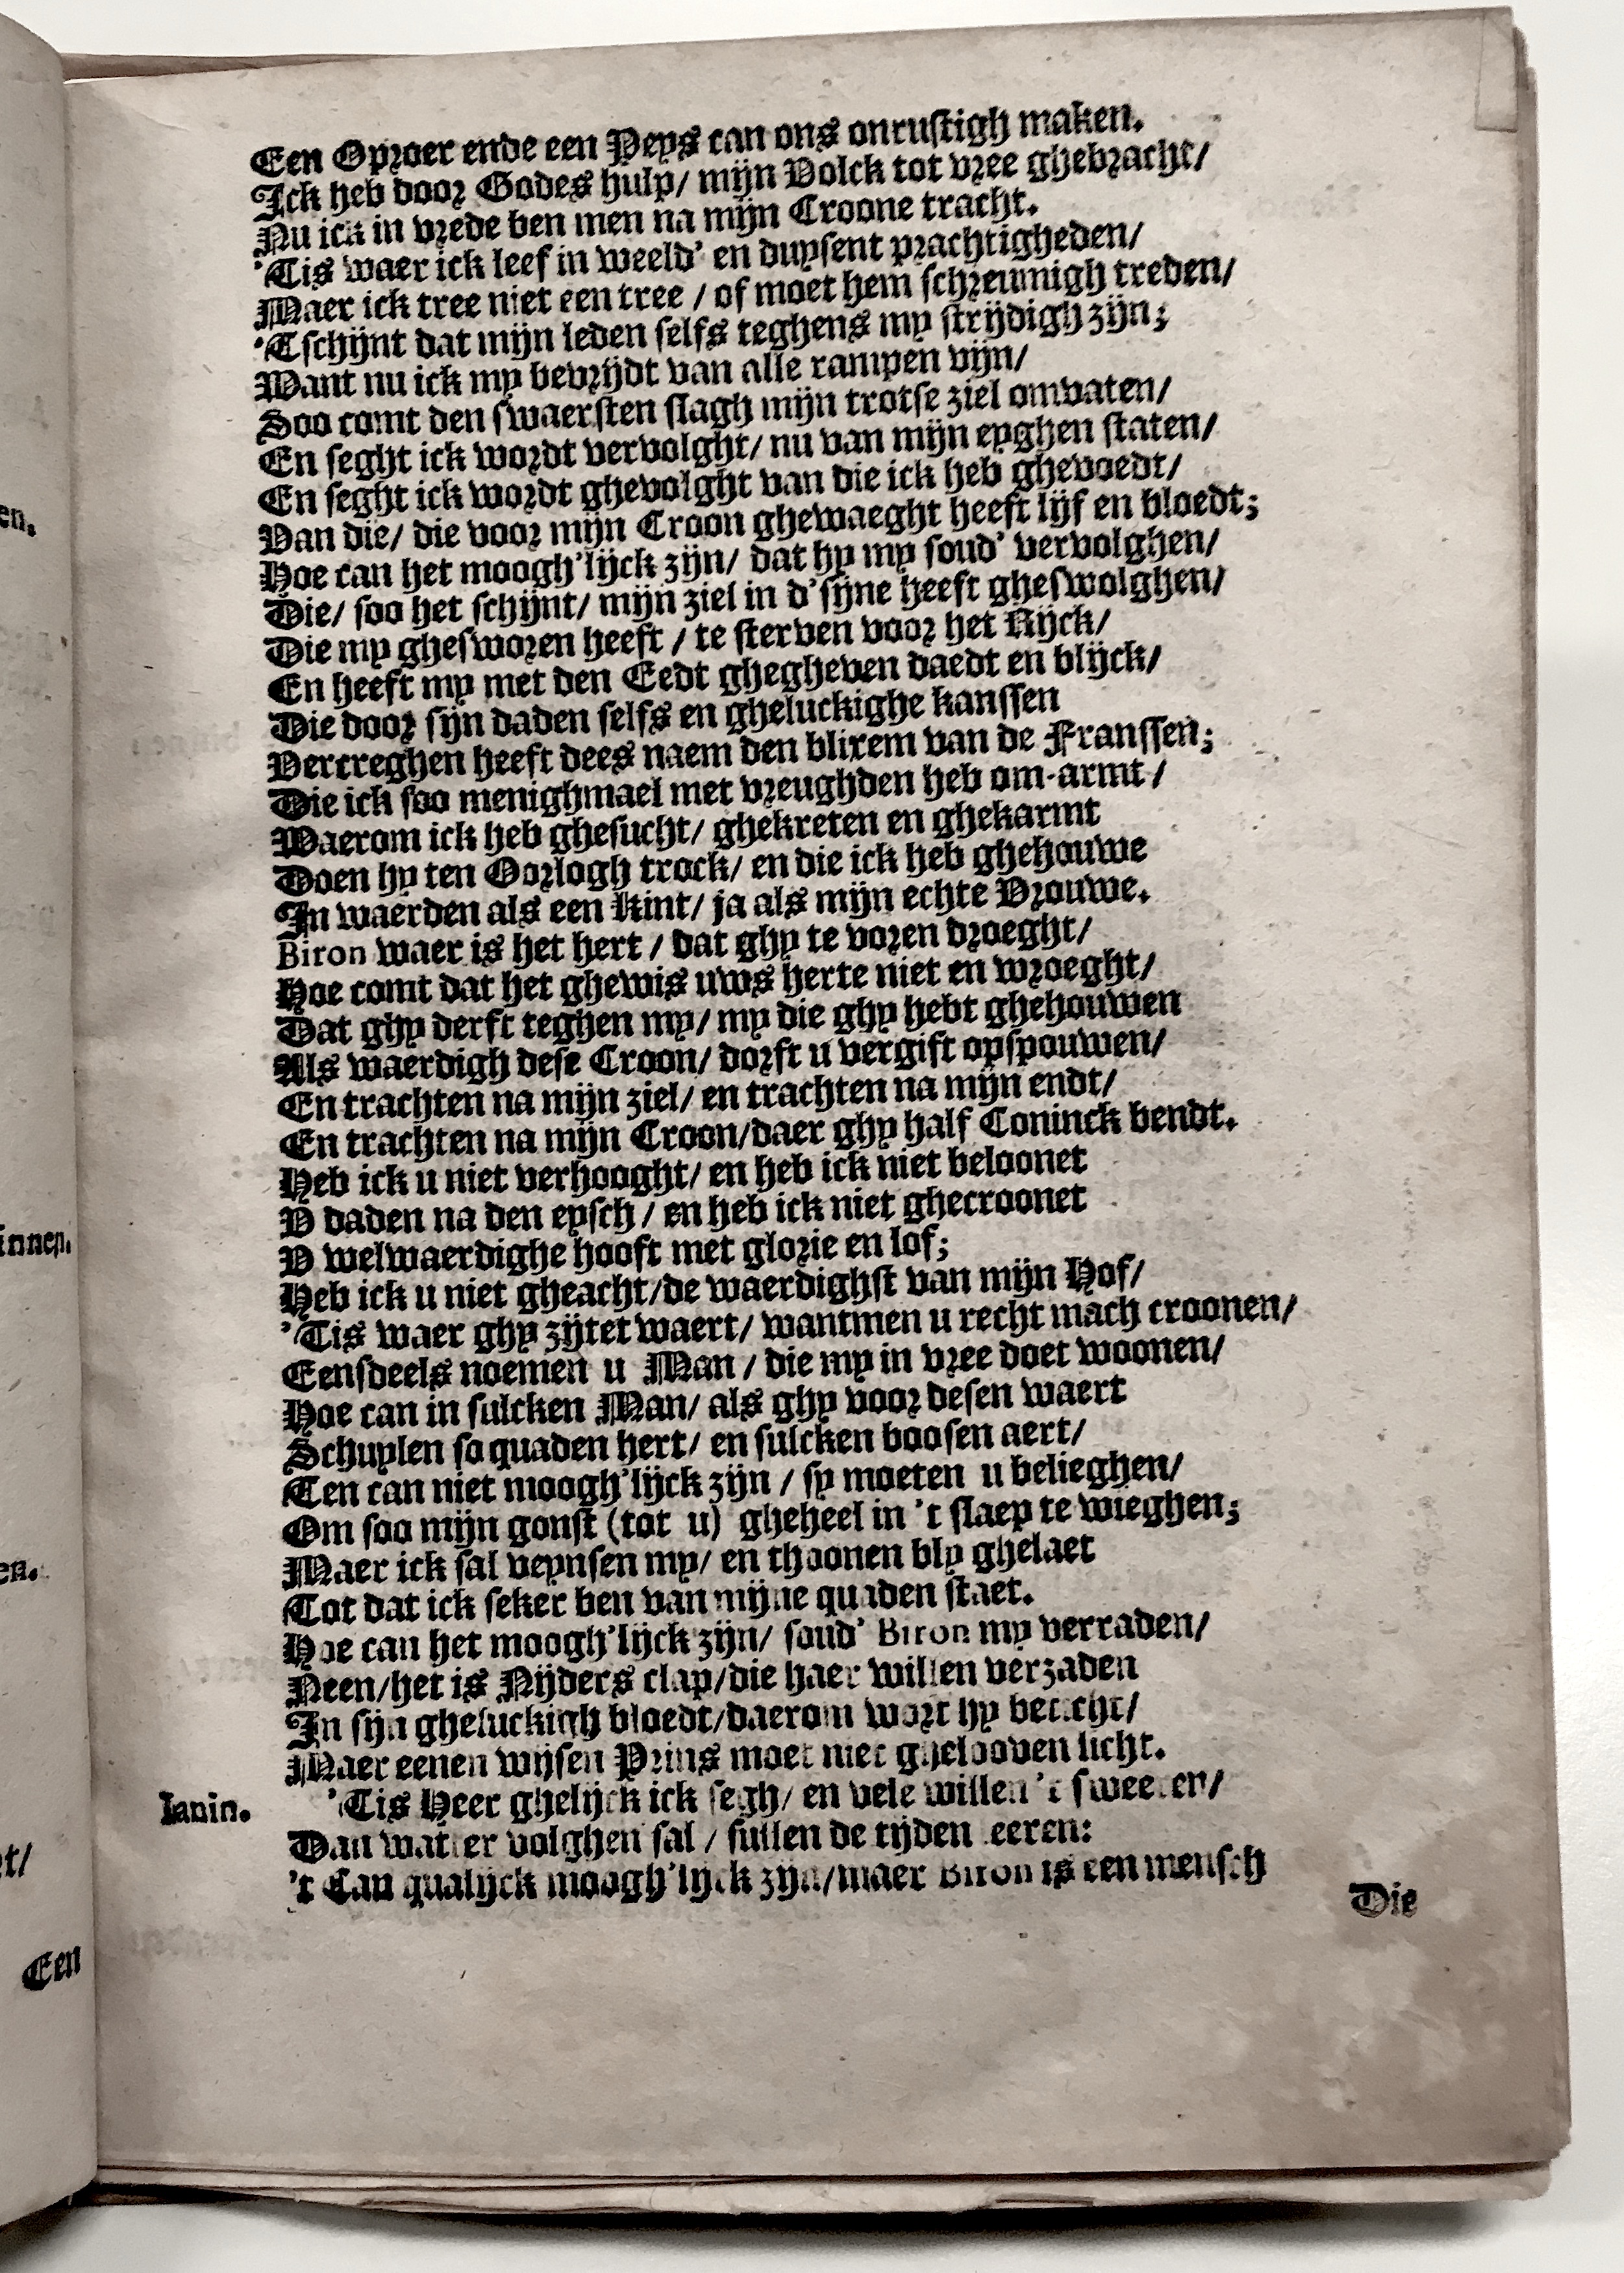 Een Oproer ende een Peys can ons onrustigh maken.
Ick heb door Godes hulp/ mijn Volck tot vree ghebracht/
Nu ick in vrede ben men na mijn Croone tracht.
'Tis waer ick leef in weeld' en duysent prachtigheden/
Maer ick tree niet een tree / of moet hem schreumigh treden/
'Tschijnt dat mijn leden selfs teghens my strijdigh zijn;
Want nu ick my bevrijdt van alle rampen vijn/
Soo comt den swaersten slagh mijn trotse ziel omvaten/
En seght ick wordt vervolght/ nu van mijn eyghen staten/
En seght ick wordt ghevolght van die ick heb ghevoedt/
Van die/ die voor mijn Croon ghewaeght heeft lijf en bloedt;
Hoe can het moogh'lijck zijn/ dat hy my soud' vervolghen/
Die/ soo het schijnt/ mijn ziel in d'sijne heeft gheswolghen/
Die my ghesworen heeft / te sterven voor het Rijck/
En heeft my met den Eedt ghegheven daedt en blijck/
Die door sijn daden selfs en gheluckighe kanssen
Vercreghen heeft dees naem den blixem van de Franssen;
Die ick soo menighmael met vreughden heb om-armt/
Waerom ick heb ghesucht/ ghekreten en ghekarmt
Doen hy ten Oorlogh trock/ en die ick heb ghehouwe
In waerden als een Kint/ ja als mijn echte Vrouwe.
Biron waer is het hert / dat ghy te voren droeght/
Hoe comt dat het ghewis uws herte niet en wroeght/
Dat ghy derft teghen my/ my die ghy hebt ghehouwen
Als waerdigh dese Croon/ dorft u vergift opspouwen/
En trachten na mijn ziel/ en trachten na mijn endt/
En trachten na mijn Croon/daer ghy half Coninck bendt.
Heb ick u niet verhooght/ en heb ick niet beloonet
V daden na den eysch / en heb ick niet ghecroonet
V welwaerdighe hooft met glorie en lof;
Heb ick u niet gheacht/de waerdighst van mijn Hof/
'Tis waer ghy zijtet waert/ wantmen u recht mach croonen/
Eensdeels noemen u Man / die my in vree doet woonen/
Hoe can in sulcken Man/ als ghy voor desen waert
Schuylen so quaden hert/ en sulcken boosen aert/
Ten can niet moogh'lijck zijn / sy moeten u belieghen/
Om soo mijn gonst (tot u) gheheel in 't slaep te wieghen;
Maer ick sal veynsen my/ en thoonen bly ghelaet
Tot dat ick seker ben van mijne quaden staet.
Hoe can het moogh'lijck zijn/ soud' Biron my verraden/
Neen/het is Nijders clap/die haer willen verzaden
In sijn gheluckigh bloedt/daerom wort hy beticht/
Maer eenen wijsen Prins moet niet ghelooven licht.
Ianin. 'Tis Heer ghelijck ick segh/ en vele willen 't sweeren/
Dan watter volghen sal / sullen de tijden leeren:
't Can qualijck moogh'lijck zijn/maer Biron is een mensch
Die
en.
innen.
en.
t/
Een